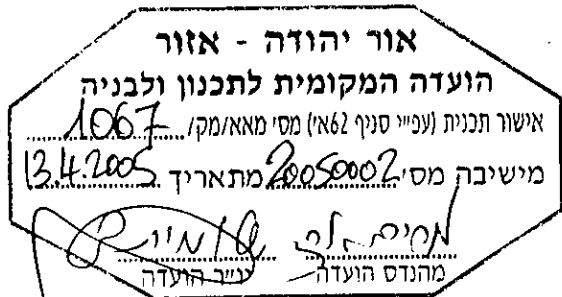 אור יהודה - אזור
הועדה המקומית לתכנון ולבניה
אישור תכנית (עפ״י סניף 62א׳) מס׳ מאא/מק/ 1067
מישיבה מס׳ 20050002 מתאריך 13.4.2005
מהנדס הועדה יו״ר הועדה